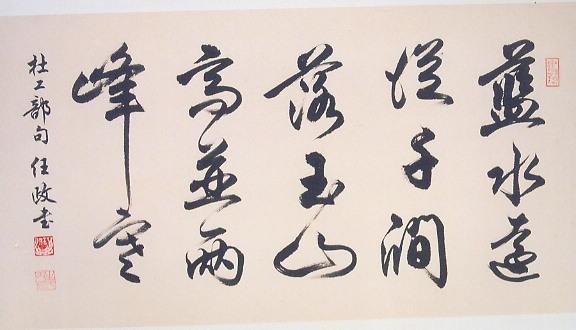 藍水遠
從千澗
落玉山
高並兩
峰寒
杜工部句任政书